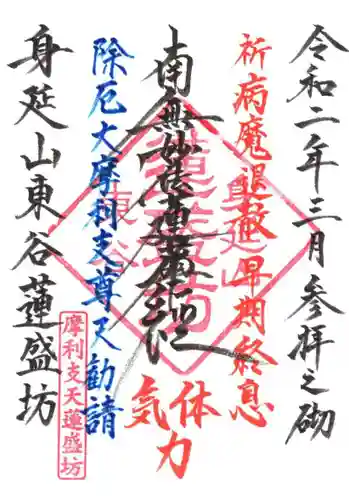 令和二年三月参拝之砌
祈病魔退散早期終息
体
気
力
南無妙法蓮華経
除厄大摩利支尊天勧請
身延山東谷蓮盛坊
摩利支天蓮盛坊
身延山
蓮盛坊
東谷